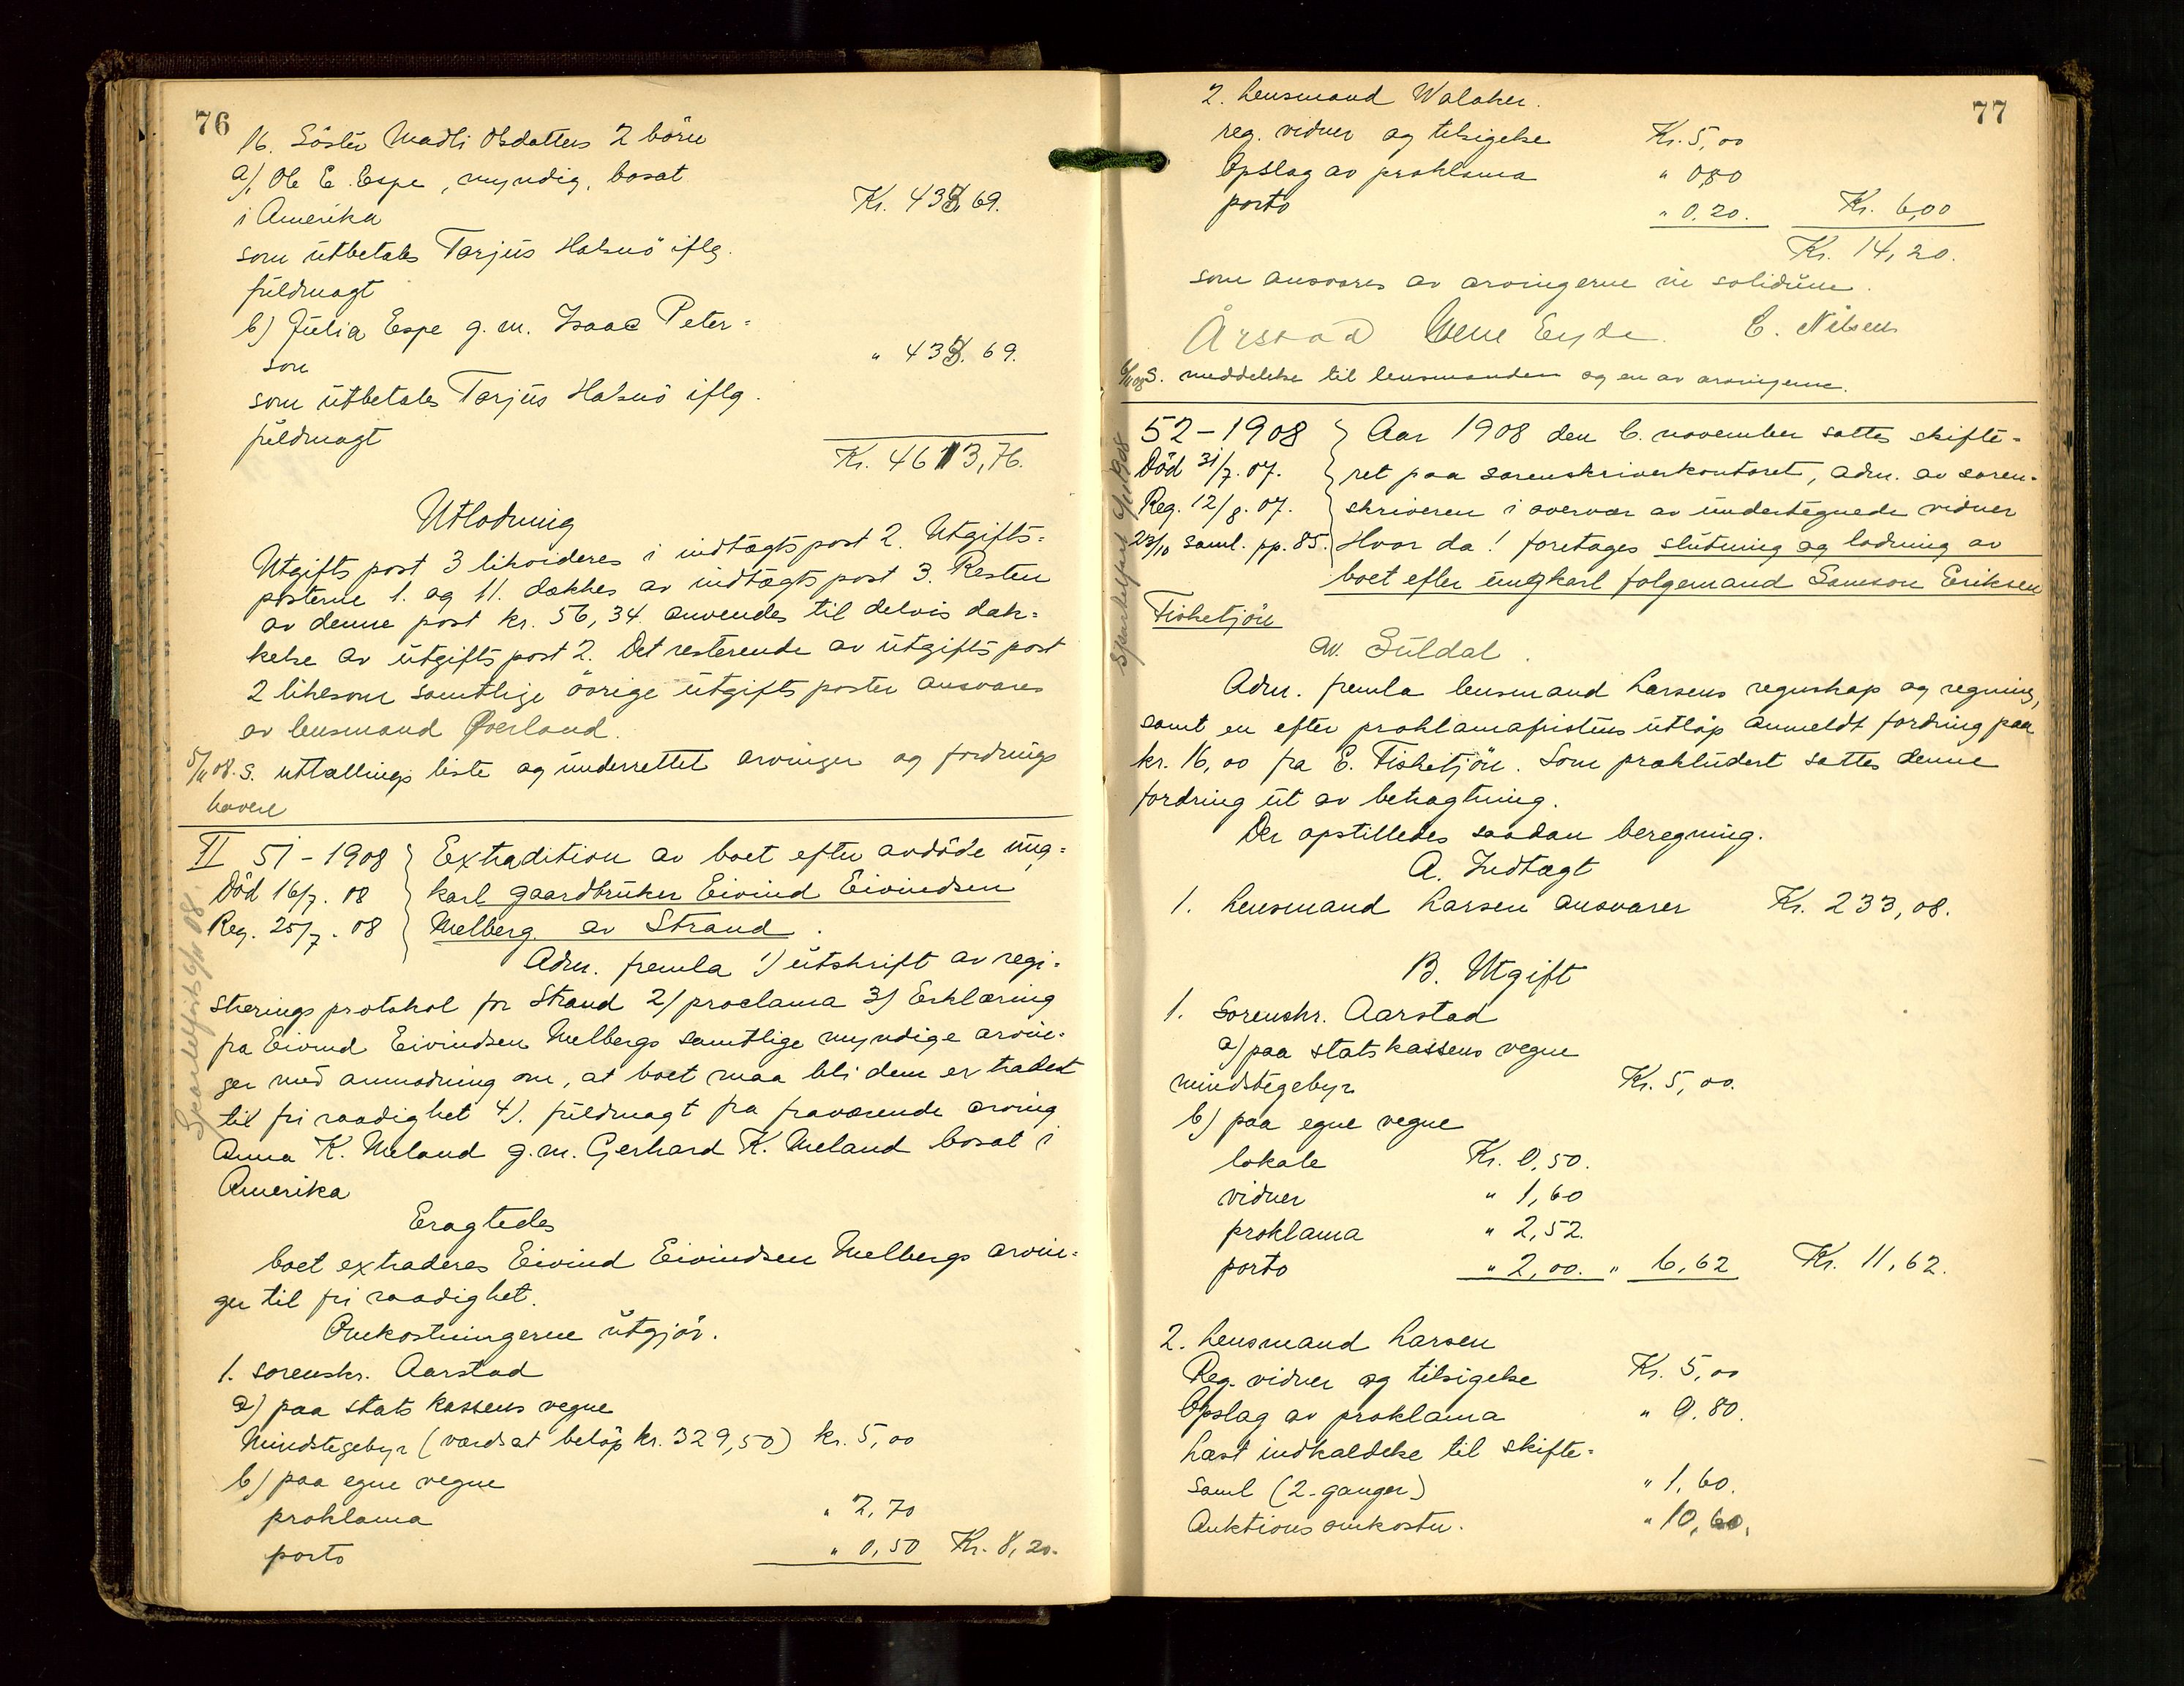 76
16. Söster Madli Olsdatters 2 börn
a), Ole E. Espe, myndig, bosat
i Amerika Kr. 438,69.
som utbetales Tarjus Halsnö iflg.
fuldmagt
b) Julia Espe g.m. Isaac Peter-
son " 438.69.
som utbetales Tarjus Halsnö iflg.
fuldmagt
Kr. 4613,76.
Utlodning
Utgifts post 3 likvideres i indtægts post 2. Utgifts-
posterne 1. og 11. dækkes av indtægts post 3. Resten
av denne post kr. 56,34 anvendes til delvis dæk-
kelse av utgifts post 2. Det resterende av utgifts post
2 likesom samtlige övrige utgifts poster ansvares
av lensmand Øverland.
5/11 08. S. uttællings liste og underrettet arvinger og fordrings
havere
II 51-1908 Extradition av boet efter avdöde ung-
Död 16/7. 08 karl gaardbruker Eivind Eivindsen
Reg. 25/7. 08 Melberg av Strand.
Sportelfrit 6/11 08.
Adm. fremla 1) utskrift av regi-
strerings protokol for Strand 2) proclama 3) Erklæring
fra Eivind Eivindsen Melbergs samtlige myndige arvin-
ger med anmodning om, at boet maa bli dem extradert
til fri raadighet 4). fuldmagt fra fraværende arving
Anna K. Meland g.m. Gerhard K. Meland bosat i
Amerika
Eragtedes
boet extraderes Eivind Eivindsen Melbergs arvin-
ger til fri raadighet.
Omkostningerne utgjör.
1. sorenskr. Aarstad
a) paa stats kassens vegne
Mindstegebyr (værdsat belöp kr. 329,50) kr. 5,00
b) paa egne vegne
proklama " 2,70
porto " 0,50 Kr. 8,20.
77
2. Lensmand Walaker.
reg. vidner og tilsigelse Kr. 5,00
Opslag av proklama " 0,80
porto " 0,20. Kr. 6,00
Kr. 14,20.
som ansvares av arvingerne in solidum.
Årstad Enne Eyde C. Nilsen
6/11 08 S. meddelelse til lensmanden og en av arvingerne.
52-1908 Aar 1908 den 6. november sattes skifte-
Död 31/7. 07. ret paa sorenskriverkontoret, adm. av soren-
Reg. 12/8. 07. skriveren i overvær av undertegnede vidner
23/10 saml. pp. 85. Hvor da! foretages slutning og lodning av
boet efter ungkarl folgemand Samson Eriksen
Fisketjön
av Suldal.
Adm. fremla lensmand Larsens regnskap og regning,
samt en efter proklamafristens utlöp anmeldt fordring paa
kr. 16,00 fra E. Fisketjön. Som prækludert sattes denne
fordring ut av betragtning.
Der opstilledes saadan beregning.
A. Indtægt
1. Lensmand Larsen ansvarer Kr. 233,08.
B. Utgift
1. Sorenskr. Aarstad
a) paa statskassens vegne
mindstegebyr Kr. 5,00.
b) paa egne vegne
lokale Kr. 0,50.
vidner " 1,60
proklama " 2,52.
porto " 2,00. " 6,62 Kr. 11,62.
2. Lensmand Larsen
Reg. vidner og tilsigelse Kr. 5,00
Opslag av proklama " 0.80.
Læst indkaldelse til skifte-
saml (2-ganger) " 1,60.
Auktions omkostn. " 10,60.